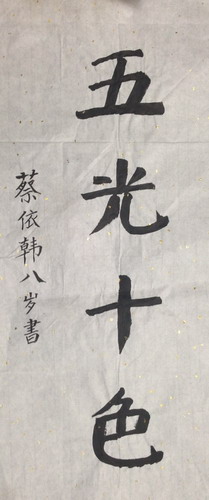 五光十色
蔡依韩八岁書